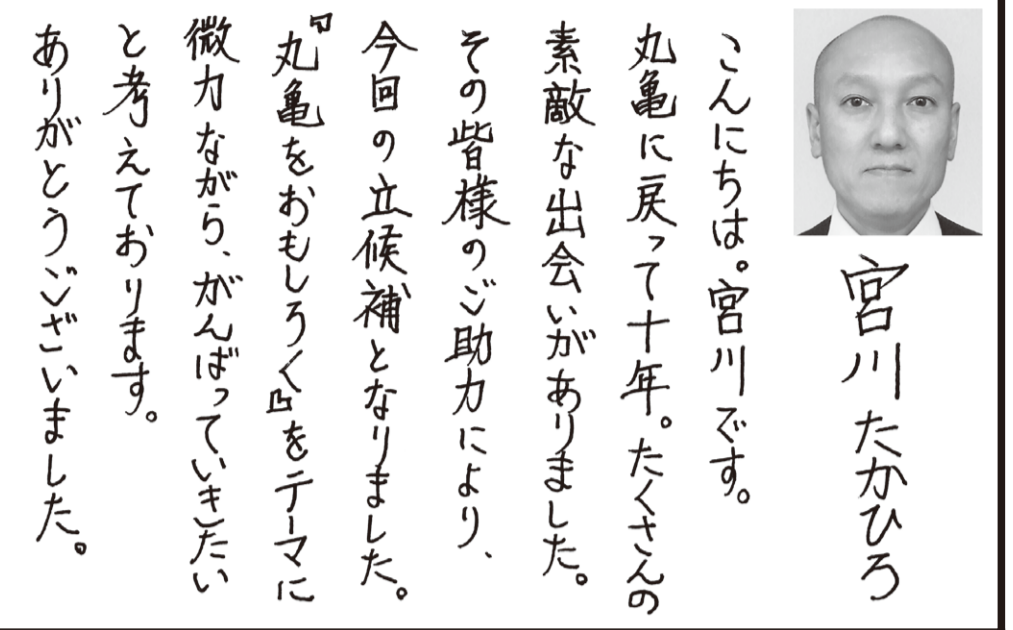 宮川たかひろ
こんにちは。宮川です。
丸亀に戻って十年。たくさんの
素敵な出会いがありました。
その皆様のご助力により、
今回の立候補となりました。
『丸亀をおもしろく』をテーマに
微力ながら、がんばっていきたい
と考えております。
ありがとうございました。